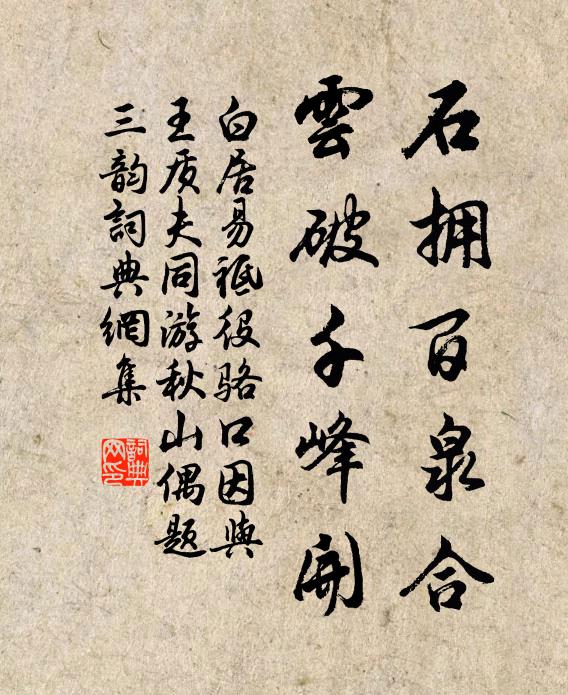 石拥百泉合
雲破千峰開
白居易祗役骆口因與
王质夫同游秋山偶题
三韵詞典網集
詞典
网印